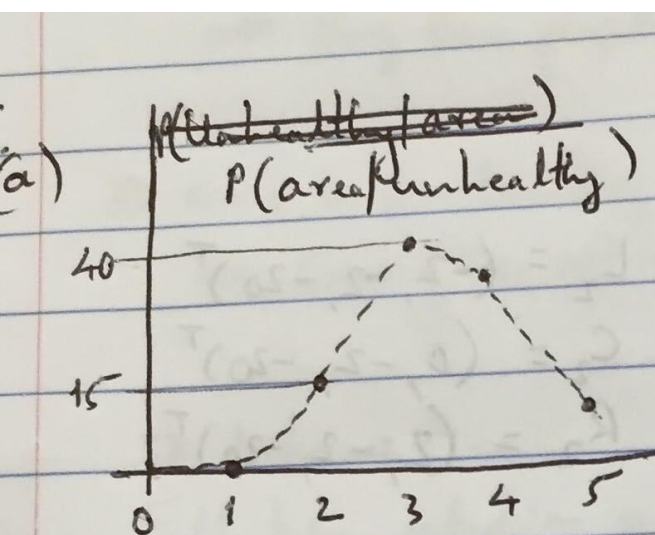 P(Unhealthy|area)
(a)
P(area|unhealthy)
40
15
0 1 2 3 4 5